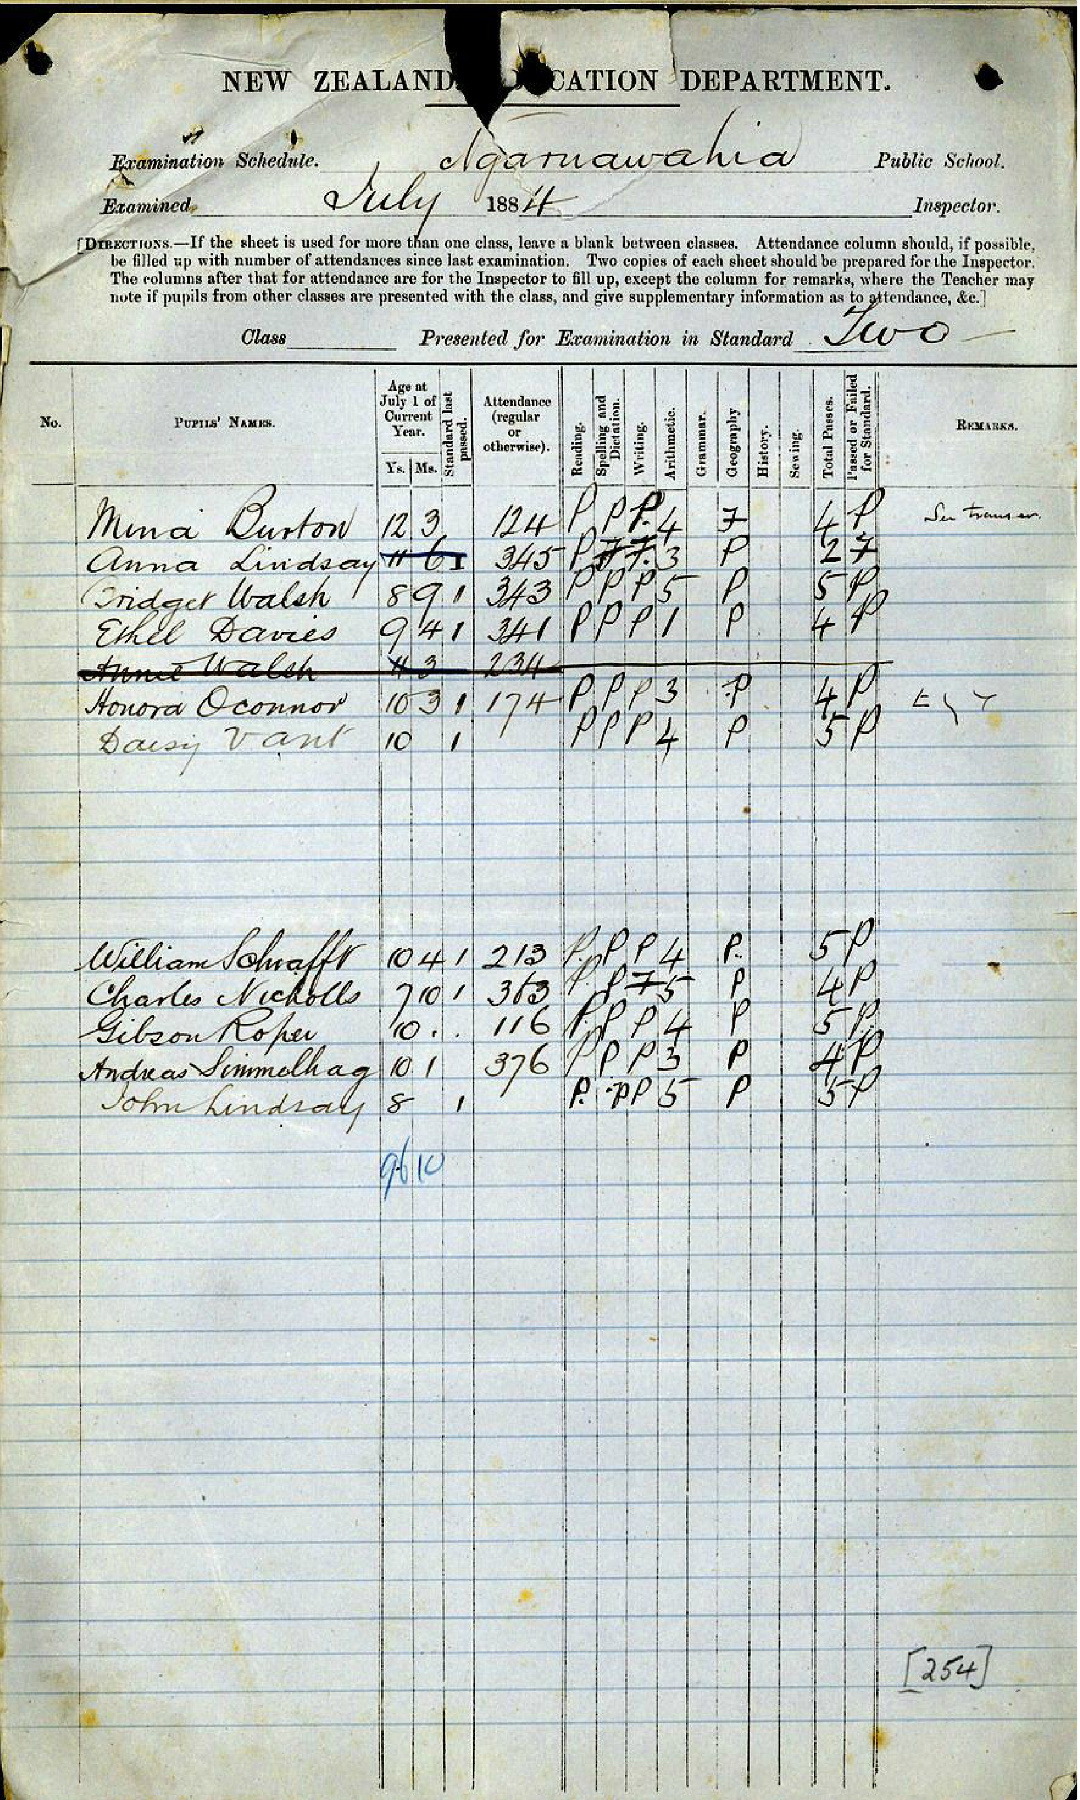 NEW ZEALAND CATION DEPARTMENT.
Examination Schedule. Ngaruawahia Public School.
Examined, July 1884 Inspector.
[DIRECTIONS.—If the sheet is used for more than one class, leave a blank between classes. Attendance column should, if possible,
be filled up with number of attendances since last examination. Two copies of each sheet should be prepared for the Inspector.
The columns after that for attendance are for the Inspector to fill up, except the column for remarks, where the Teacher may
note if pupils from other classes are presented with the class, and give supplementary information as to attendance, &c.]
Class Presented for Examination in Standard Two
No. PUPILS' NAMES. Age at July 1 of Current Year. Ys. Ms. Standard last passed. Attendance (regular or otherwise). Reading. Spelling and Dictation. Writing. Arithmetic. Grammar. Geography History. Sewing. Total Passes. Passed or Failed for Standard. REMARKS.
Mina Burton 12 3 124 P P P. 4 F 4 P
Anna Lindsay 11 6 1 345 P F F. 3 P 2 F
Bridget Walsh 8 9 1 343 P P P 5 P 5 P
Ethel Davies 9 4 1 341 P P P 1 P 4 P
Annie Walsh 11 3 234
Honora Oconnor 10 3 1 174 P P P 3 P 4 P
Daisy Vant 10 1 P P P 4 P 5 P
William Schrafft 10 4 1 213 P. P P 4 P. 5 P
Charles Nicholls 7 10 1 363 P. P F 5 P 4 P
Gibson Roper 10 . . 116 P. P P 4 P 5 P
Andreas Simmelhag 10 1 376 P P P 3 P 4 P
John Lindsay 8 1 P. P P 5 P 5 P
96 10
[254]